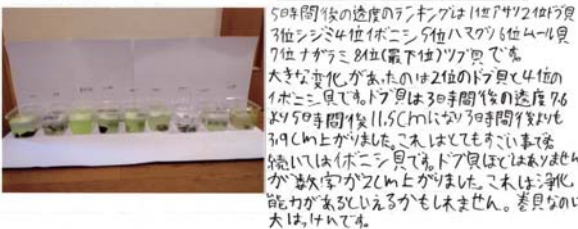 5時間後の透度のランキングは1位アサリ2位ドブ貝
3位シジミ4位イボニシ5位ハマグリ6位ムール貝
7位ナガラミ8位(最下位)ツブ貝です。
大きな変化があったのは2位のドブ貝と4位の
イボニシ貝です。ドブ貝は3時間後の透度7.6
より5時間後11.5cmになり3時間後よりも
3.9cm上がりました。これはとてもすごい事です。
続いてはイボニシ貝です。ドブ貝ほどはありません
が数字が2cm上がりました。これは浄化
能力があるといえるかもしれません。巻貝なのに
大はっけんです。